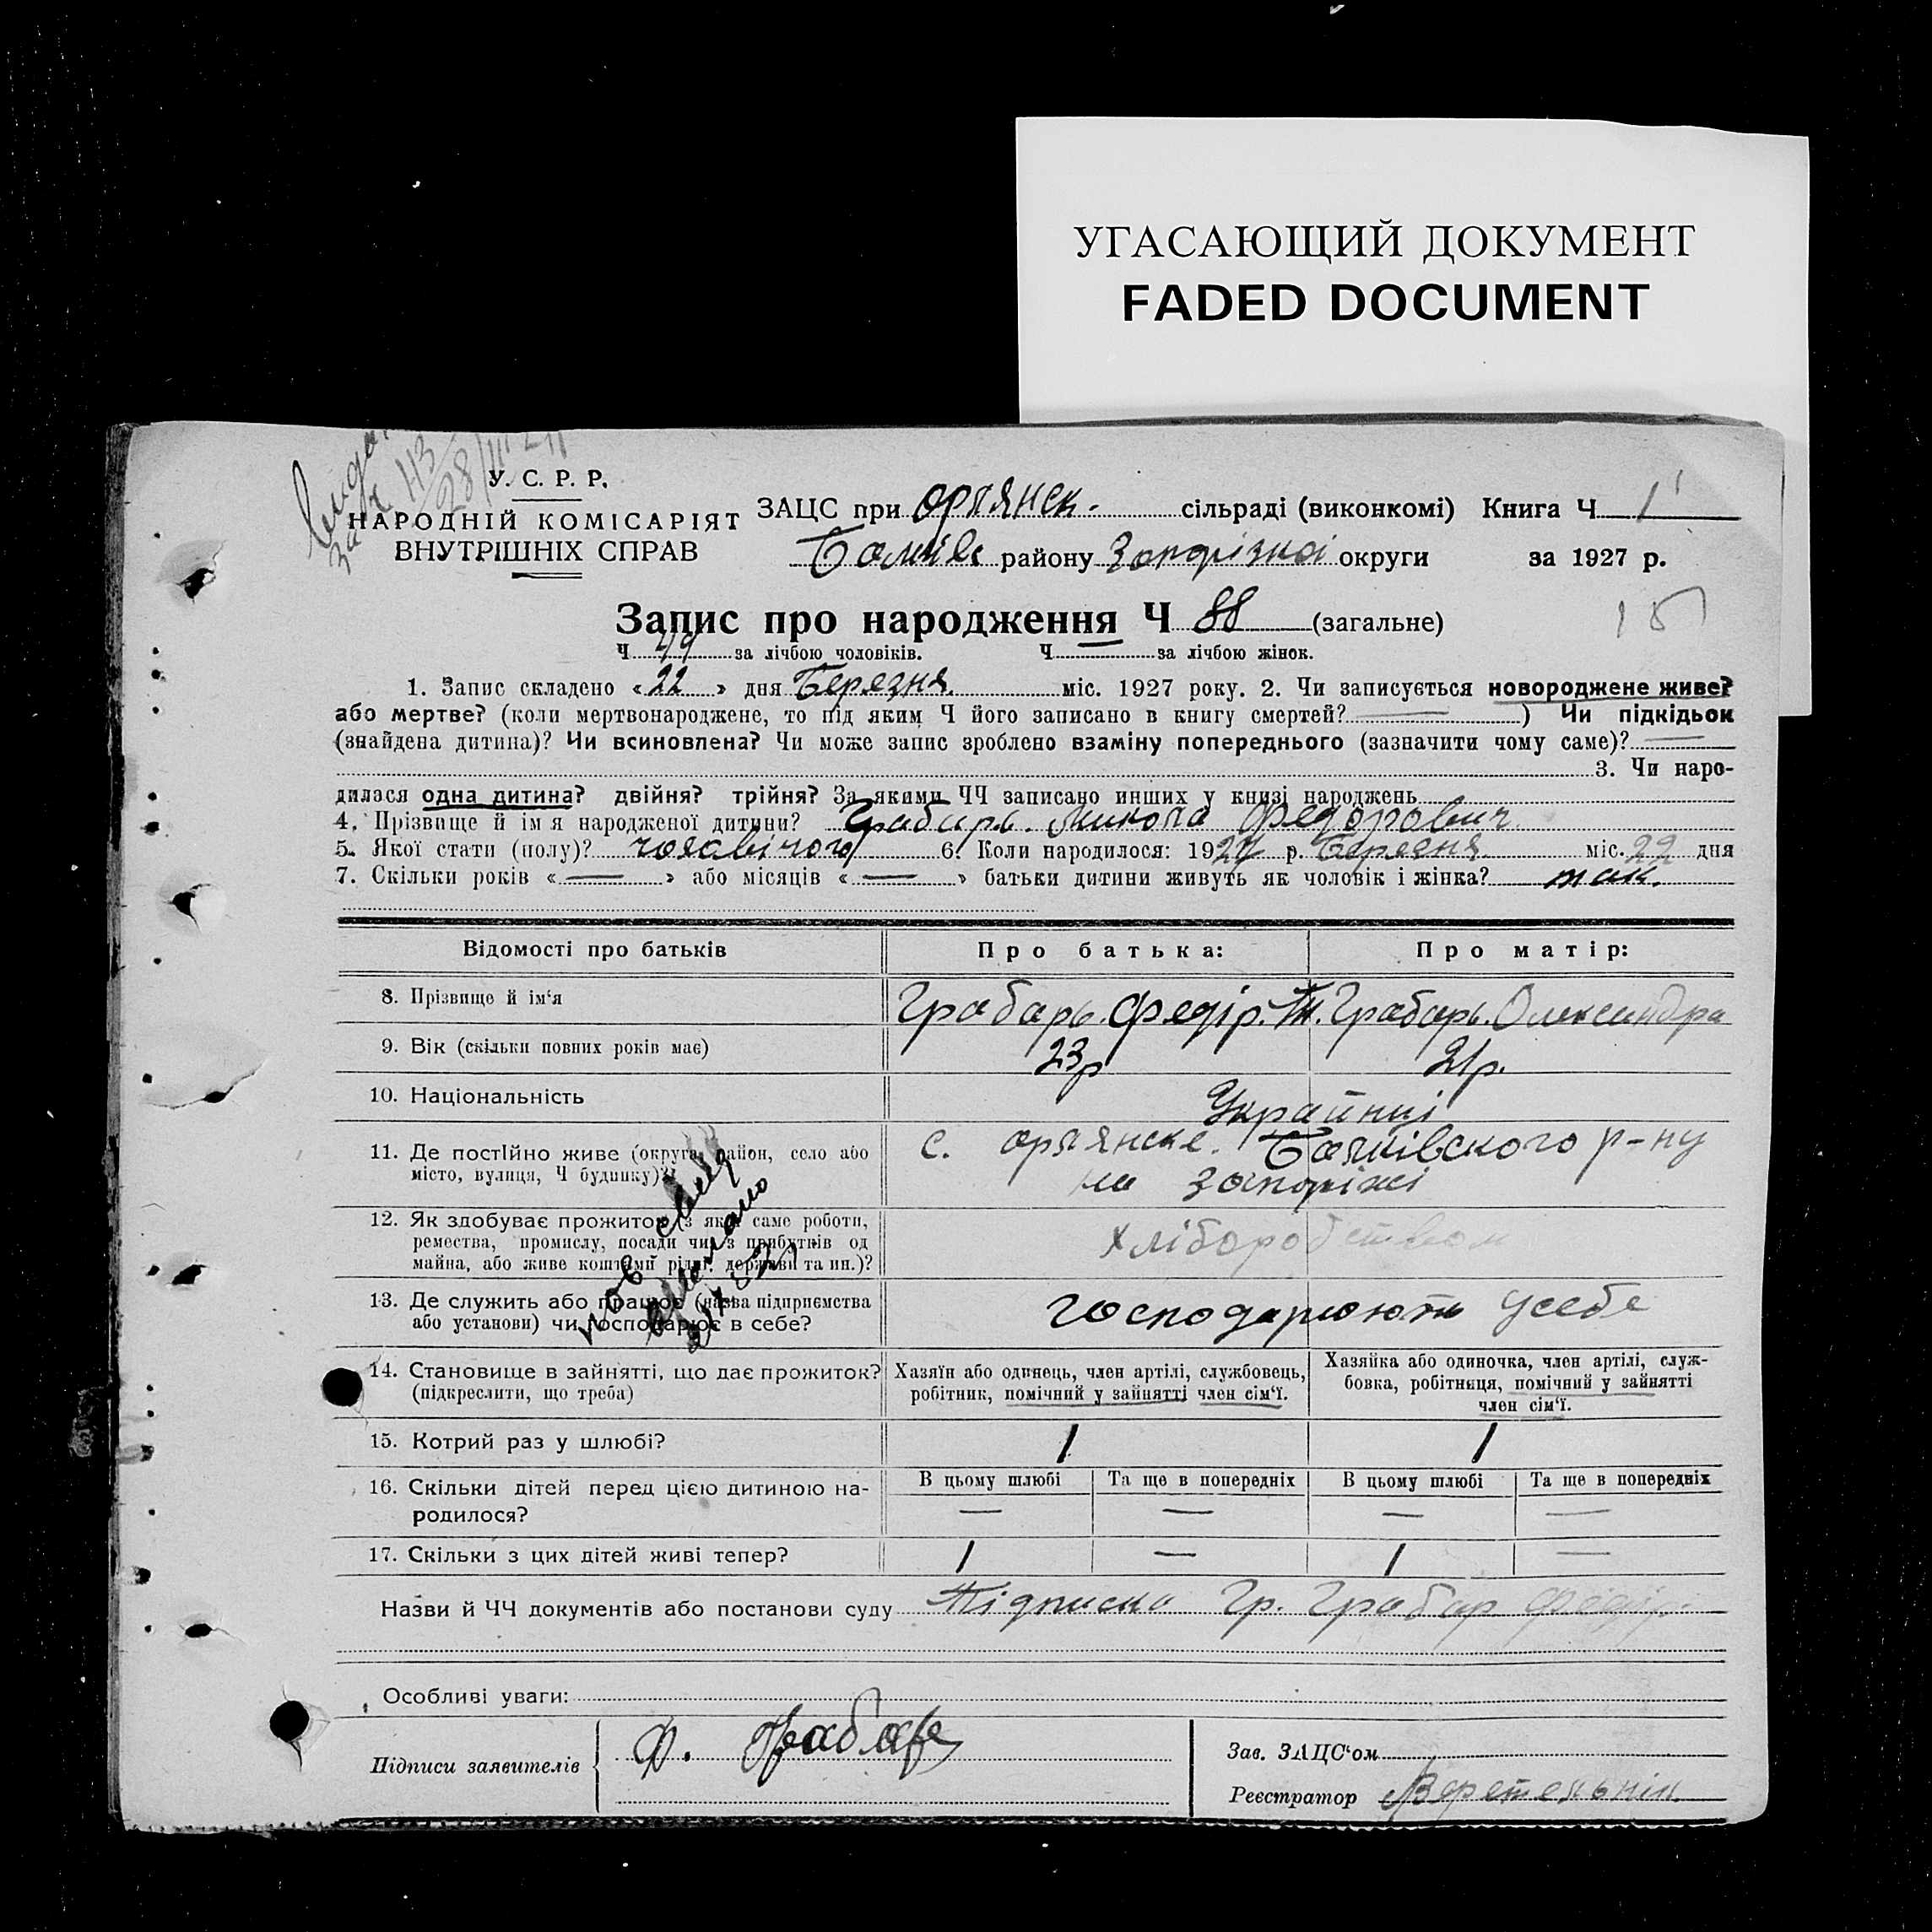 УГАСАЮЩИЙ ДОКУМЕНТ
FADED DOCUMENT
У. С. Р. Р.
НАРОДНІЙ КОМІСАРІЯТ
ВНУТРІШНІХ СПРАВ
ЗАЦС при сільраді (виконкомі) Книга Ч 1
району округи за 1927 р.
Запис про народження Ч 88 (загальне)
Ч 49 за лічбою чоловіків. Ч за лічбою жінок.
1. Запис складено «22» дня Березня міс. 1927 року. 2. Чи записується новороджене живе?
або мертве? (коли мертвонароджене, то під яким Ч його записано в книгу смертей? — ) Чи підкідьок
(знайдена дитина)? Чи всиновлена? Чи може запис зроблено взаміну попереднього (зазначити чому саме)? —
3. Чи наро-
дилася одна дитина? двійня? трійня? За якими ЧЧ записано инших у книзі народжень
4. Прізвище й ім я народженої дитини? Грабарь. Микола Федорович
5. Якої стати (полу)? 6. Коли народилося: 1927 р. Березня міс. 22 дня
7. Скільки років «—» або місяців «—» батьки дитини живуть як чоловік і жінка? так.
Відомості про батьків Про батька: Про матір:
8. Прізвище й ім‘я Грабарь. Федір. Т. Грабарь. Олександра
9. Вік (скільки повних років має) 23р 21р.
10. Національність Українці
11. Де постійно живе (округа, район, село або
місто, вулиця, Ч будинку)?
с. р-ну
на Запоріжі
12. Як здобуває прожиток (з якої саме роботи,
ремества, промислу, посади чи з прибутків од
майна, або живе коштами рідні, держави та ин.)?
хліборобством
13. Де служить або працює (назва підприємства
або установи) чи господарює в себе?
господарюють усебе
14. Становище в зайнятті, що дає прожиток?
(підкреслити, що треба)
Хазяїн або одинець, член артілі, службовець,
робітник, помічний у зайнятті член сім‘ї.
Хазяйка або одиночка, член артілі, служ-
бовка, робітниця, помічний у зайнятті
член сім‘ї.
15. Котрий раз у шлюбі? 1 1
16. Скільки дітей перед цією дитиною на-
родилося?
В цьому шлюбі Та ще в попередніх В цьому шлюбі Та ще в попередніх
— — — —
17. Скільки з цих дітей живі тепер? 1 — 1 —
Назви й ЧЧ документів або постанови суду Підписка Гр. Грабар Федір.
Особливі уваги:
Підписи заявителів Ф. Грабарь
Зав. ЗАЦС‘ом
Реєстратор